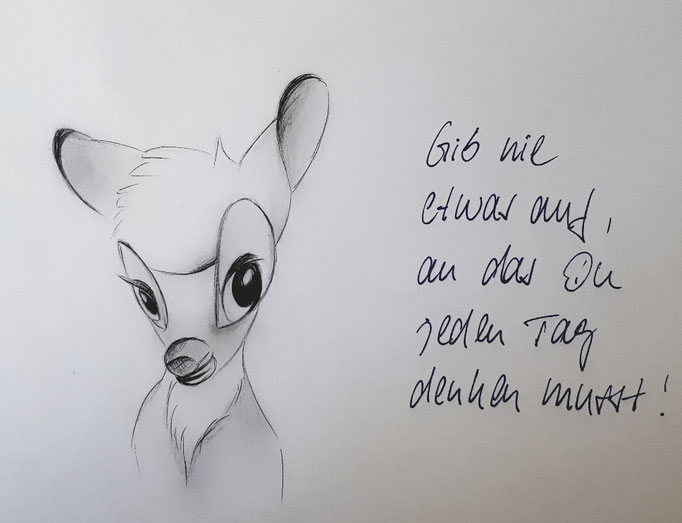 Gib nie
etwas auf,
an das Du
jeden Tag
denken musst!